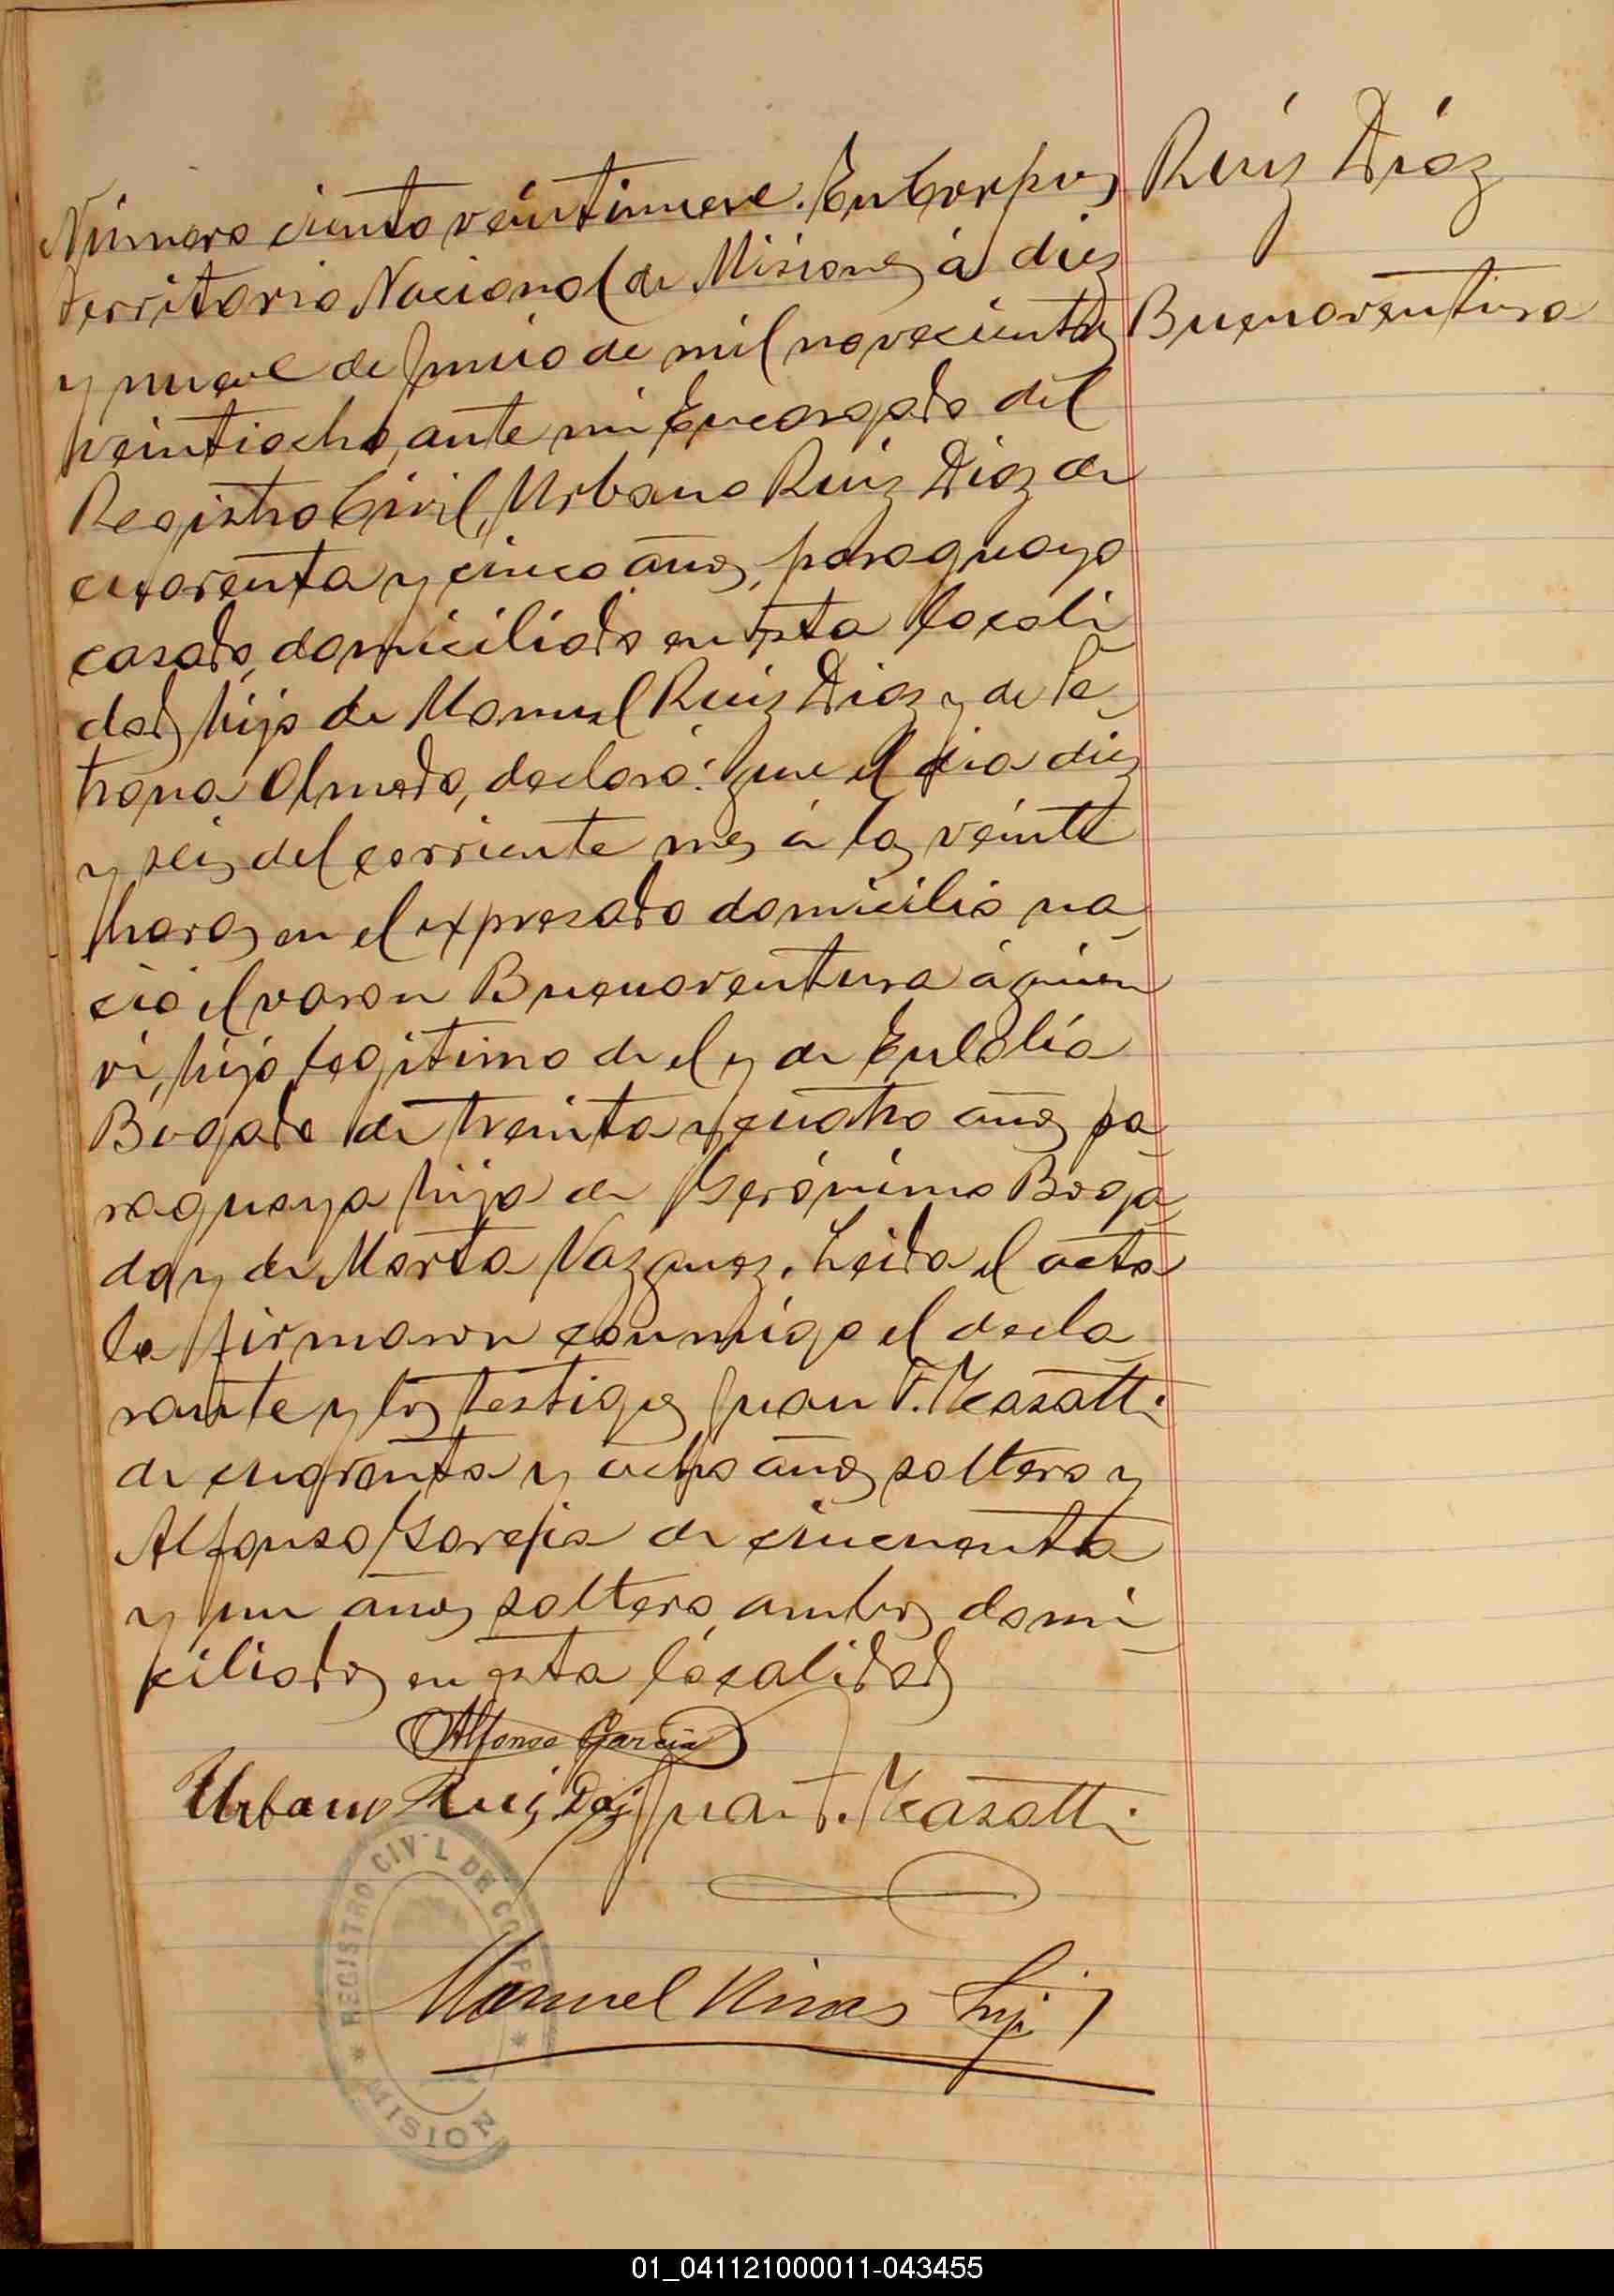 Ruíz Díaz
Buenaventura
Número ciento veintinueve. En Corpus
Territorio Nacional de Misiones á diez
y nueve de Junio de mil novecientos
veintiocho, ante mi Encargado del
Registro Civil, Urbano Ruiz Diaz de
cuarenta y cinco años, paraguayo
casado, domiciliado en esta locali
dad, hijo de Manuel Ruiz Diaz y de Pe
trona Olmedo, declaró: que el dia diez
y seis del corriente mes á las veinte
horas en el expresado domicilio na
ció el varon Buenaventura á quien
vi, hijo legitimo de el y de Eulalia
Bogado de treinta y cuatro años pa
raguaya hija de Gerónimo Boga
do y de Marta Vazquez. Leida el acta
la firmaron conmigo el decla
rante y los testigos Juan F. Masatti
de cuarenta y ocho años soltero y
Alfonso Garcia de cincuenta
y un años soltero, ambos domi
ciliados en esta localidad
Alfonso Garcia
Urbano Ruiz Diaz Juan F. Masatti
REGISTRO CIVIL DE CORP
MISION
Manuel
01_041121000011-043455